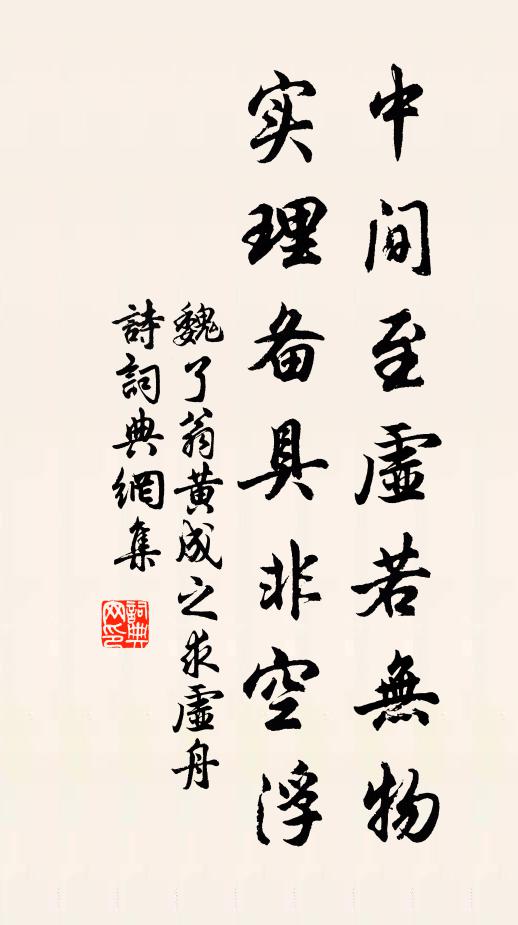 中間至虛若無物
实理备具非空浮
魏了翁黄成之求虛舟
詩詞典網集
詞典网印